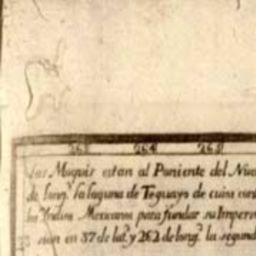 263 264 265
Los Moquis estan al Poniente del Nue
de long.ᵈ la laguna de Teguayo de cuia
los Yndios Mexicanos para fundar su Imperi
sion en 37 de lat.ᵈ y 262 de long.ᵈ la segund